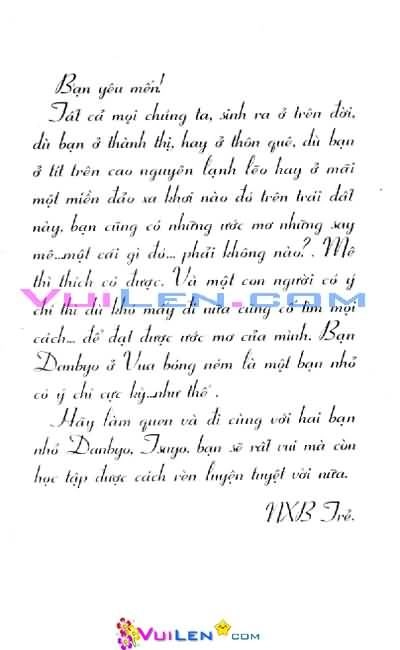 Bạn yêu mến!
Tất cả mọi chúng ta, sinh ra ở trên đời,
dù bạn ở thành thị, hay ở thôn quê, dù bạn
ở tít trên cao nguyên lạnh lẽo hay ở mãi
một miền đảo xa khơi nào đó trên trái đất
này, bạn cũng có những ước mơ những say
mê...một cái gì đó... phải không nào?. Mê
thì thích có được. Và một con người có ý
chí thì dù khó mấy đi nữa cũng cố tìm mọi
VuiLen.com
cách... để đạt được ước mơ của mình. Bạn
Danbyo ở Vua bóng ném là một bạn nhỏ
có ý chí cực kỳ...như thế.
Hãy làm quen và đi cùng với hai bạn
nhỏ Danbyo, Tsuyo, bạn sẽ rất vui mà còn
học tập được cách rèn luyện tuyệt vời nữa.
NXB Trẻ.
VuiLen.com